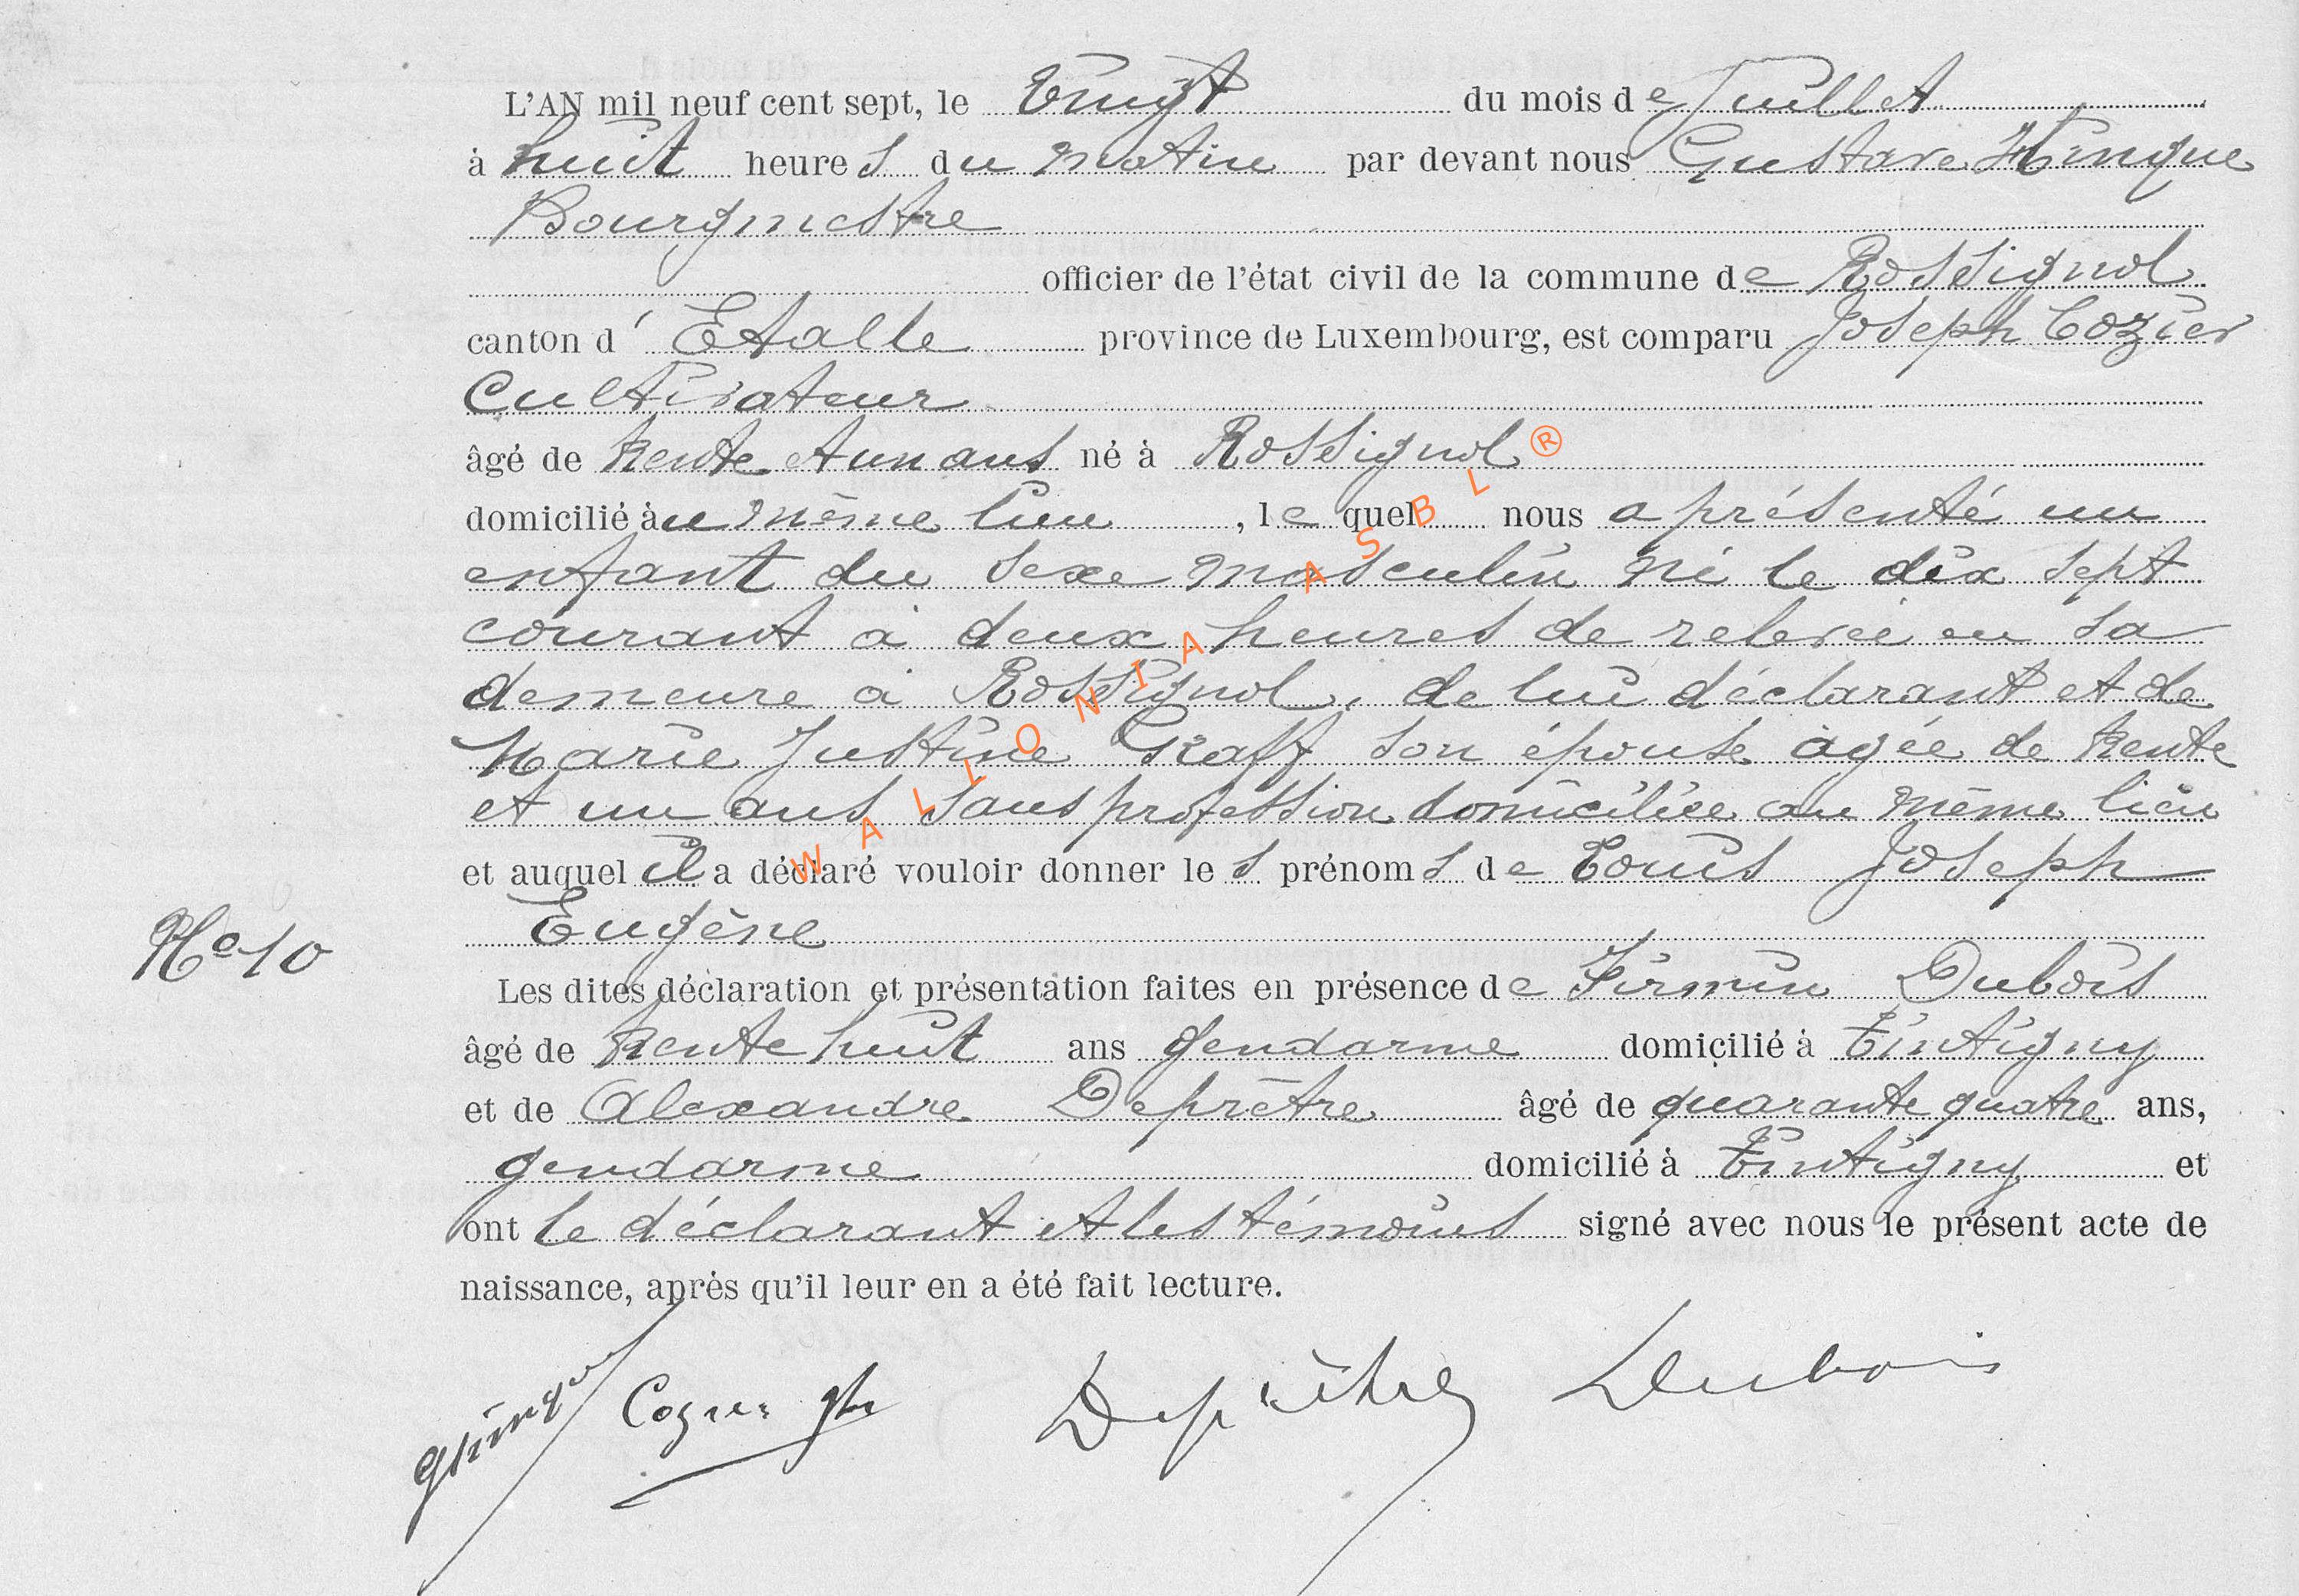 L'AN mil neuf cent sept, le Vingt du mois de Juillet
à huit heures du matin par devant nous Gustave Hinque
Bourgmestre
officier de l'état civil de la commune de Rossignol
canton d' Etalle province de Luxembourg, est comparu Joseph Cozier
Cultivateur
âgé de trente et un ans né à Rossignol
domicilié au même lieu , le quel nous a présenté un
enfant du sexe masculin né le dix sept
courant à deux heures de relevée en sa
demeure à Rossignol, de lui déclarant et de
Marie Justine Graff son épouse âgée de trente
et un ans sans profession domiciliée au même lieu
et auquel il a déclaré vouloir donner les prénoms de Louis Joseph
Eugène
No 10
Les dites déclaration et présentation faites en présence de Firmin Dubois
âgé de trente huit ans gendarme domicilié à Tintigny
et de Alexandre Deprêtre âgé de quarante quatre ans,
gendarme domicilié à Tintigny et
ont le déclarant et les témoins signé avec nous le présent acte de
naissance, après qu'il leur en a été fait lecture.
GHinque Cozier Jh Deprêtre Dubois
WALLONIA ASBL ®